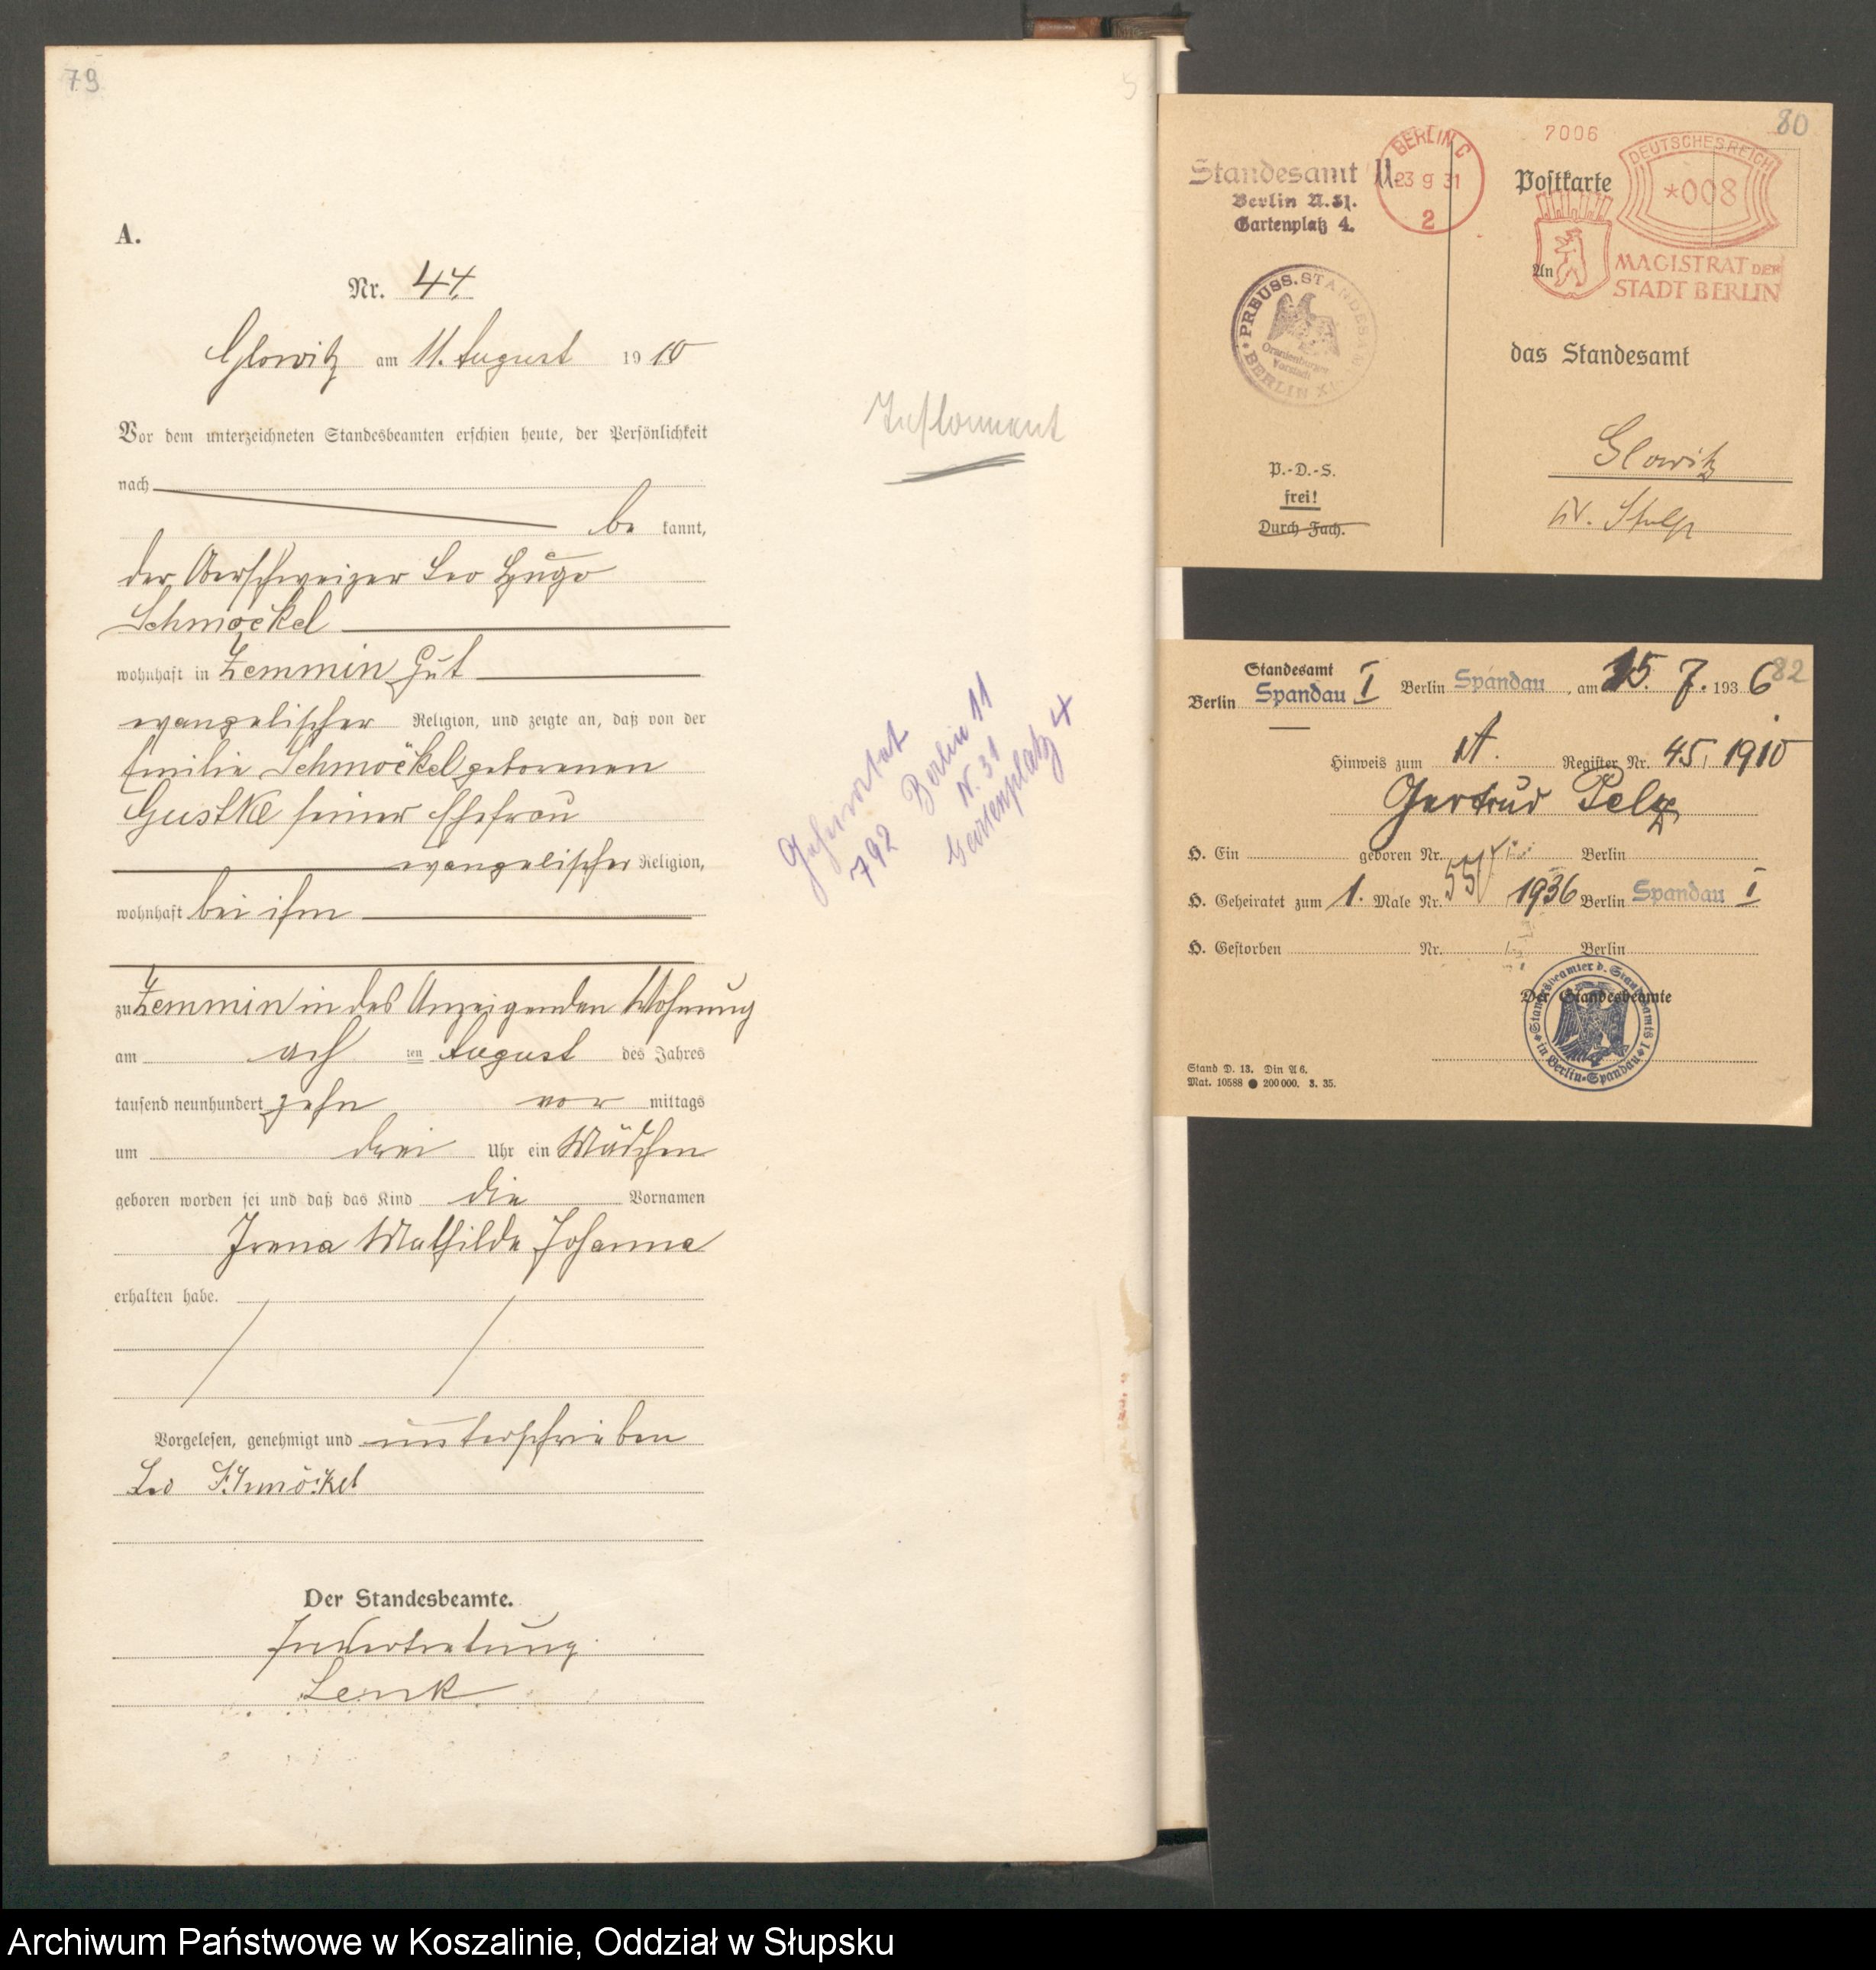 79
A.
Nr. 44.
Glowitz am 11. August 1910
Vor dem unterzeichneten Standesbeamten erschien heute, der Persönlichkeit
nach
be kannt,
der Oberschweizer Leo Hugo
Schmoekel
wohnhaft in Zemmin Gut
evangelischer Religion, und zeigte an, daß von der
Emilie Schmoekel geborenen
Gustke seiner Ehefrau
evangelischer Religion,
wohnhaft bei ihm
zu Zemmin in des Anzeigenden Wohnung
am ach ten August des Jahres
tausend neunhundert zehn vor mittags
um drei Uhr ein Mädchen
geboren worden sei und daß das Kind die Vornamen
Irena Mathilde Johanna
erhalten habe.
Vorgelesen, genehmigt und unterschrieben
Leo Schmökel
Der Standesbeamte.
In Vertretung
Lenk
Testament
Geheiratet
792 Berlin 11
N. 31
Gartenplatz 4
80
Standesamt 11.
Berlin N.31.
Gartenplatz 4.
BERLIN C
23 9 31
2
7006
Postkarte
DEUTSCHES REICH
*008
MAGISTRAT DER
STADT BERLIN
An
PREUSS. STANDESAMT
Oranienburger
Vorstadt
BERLIN XI
das Standesamt
Glowitz
Kr. Stolp
P.-D.-S.
frei!
Durch Fach.
82
Standesamt
Berlin Spandau I Berlin Spandau, am 15. 7. 1936
Hinweis zum A. Register Nr. 45, 1910
Gertrud Pelz
H. Ein geboren Nr. Berlin
H. Geheiratet zum 1. Male Nr. 551 1936 Berlin Spandau I
H. Gestorben Nr. Berlin
Der Standesbeamte
Standesbeamter d. Standesamts I
in Berlin-Spandau
Stand D. 13. Din A 6.
Mat. 10588 ● 200 000. 3. 35.
Archiwum Państwowe w Koszalinie, Oddział w Słupsku